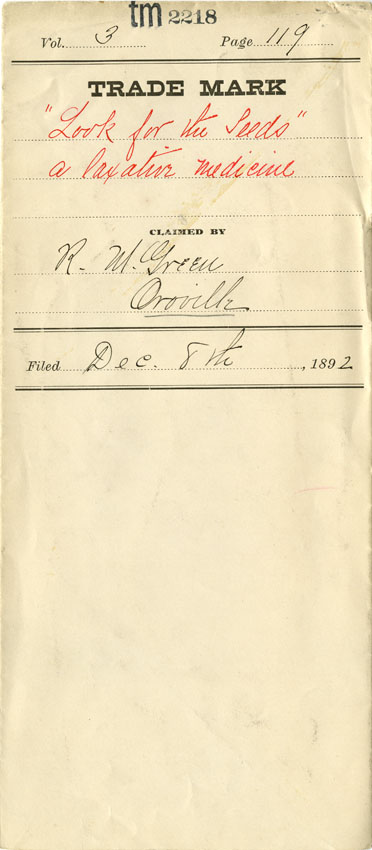 tm 2218
Vol. 3 Page 119
TRADE MARK
"Look for the Seeds"
a laxative medicine
CLAIMED BY
R. M. Green
Oroville
Filed Dec. 8th, 1892